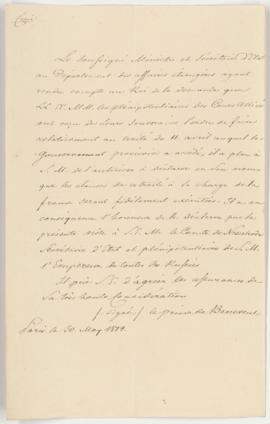 Le soussigné Ministre et Secrétaire d'Etat
au Département des affaires étrangères ayant
rendu compte au Roi de la demande que
LL. EE. MM. les plénipotentiaires des Cours alliées
ont reçu de leurs Souverains l'ordre de faire
relativement au traité du 11 avril auquel le
Gouvernement provisoire a accédé, il a plu à
S. M. de l'autoriser à déclarer en son nom
que les clauses du traité à la charge de la
france seront fidèlement exécutées. Il a en
conséquence l'honneur de le déclarer par la
présente note à S. E. Mr. le Comte de Nesselrode
Secrétaire d'Etat et plénipotentiaire de S. M.
l'Empereur de toutes les Russies
Il prie S. E. d'agréer les assurances de
Sa très haute Considération
(Signé) le prince de Benevent
Paris le 30 May 1814.